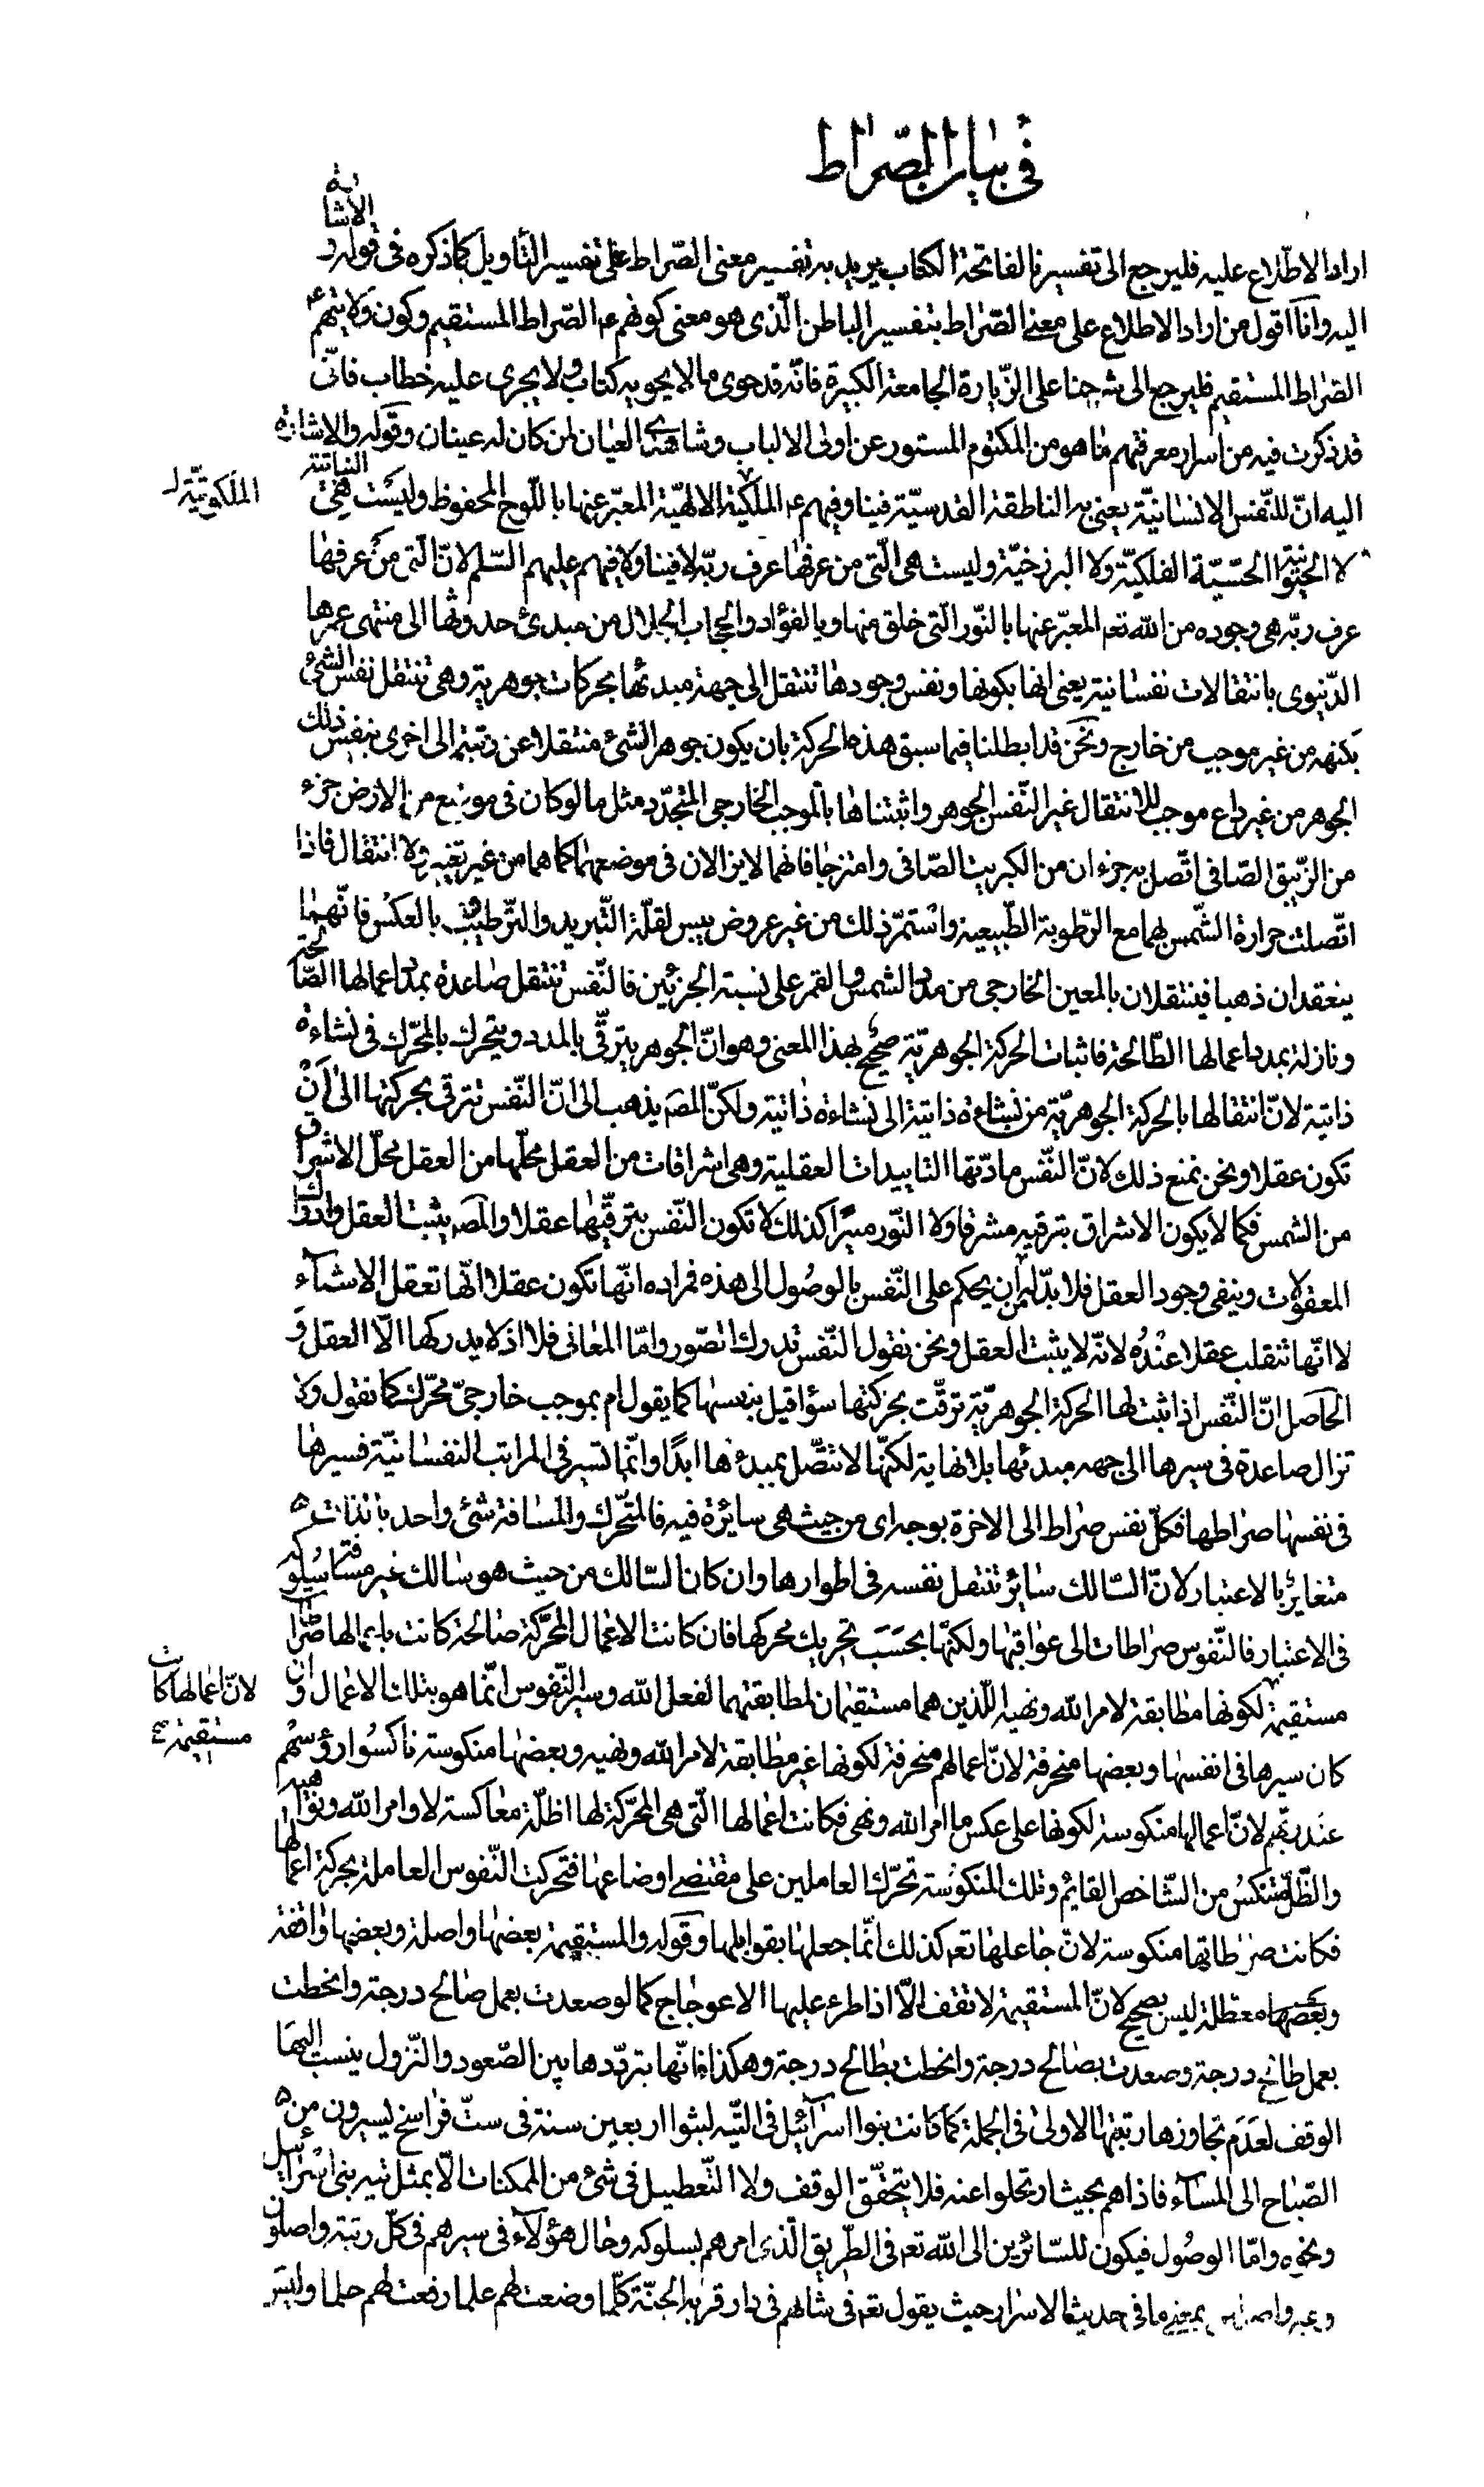 في بيان الصّراط
اراد الاطّلاع عليه فليرجع الى تفسيرنا لفاتحة الكتاب يريد به تفسير معنى الصّراط على تفسير التأويل كما ذكره في قوله و الاشارة
اليه وانا اقول من اراد الاطلاع على معنى الصّراط بتفسير الباطن الّذى هو معنى كونهم ع الصّراط المستقيم وكون ولايتهم ع
الصّراط المستقيم فليرجع الى شرحنا على الزّيارة الجامعة الكبيرة فانّه قد حوى ما لا يحويه كتاب ولا يجرى عليه خطاب فانّى
قد ذكرت فيه من اسرار معرفتهم ما هو من المكتوم المستور عن اولى الالباب وشاهدى العيان لمن كان له عينان وقوله والاشارة
اليه انّ للنّفس الانسانيّة يعنى به الناطقة القدسيّة فينا وفيهم ع الملكيّة الالهيّة المعبّر عنها باللّوح المحفوظ وليست هى النباتية
الملكوتيّة
لا الحيوانية الحسّيّة الفلكيّة ولا البرزخيّة وليست هى الّتى من عرفها عرف ربّه لا فينا ولا فيهم عليهم السّلم لانّ الّتى من عرفها
عرف ربّه هى وجوده من الله تعم المعبّر عنها بالنّور الّتى خلق منها وبالفؤاد والحجاب الجلال من مبدئ حدوثها الى منتهى عمرها
الدّنيوى بانتقالات نفسانية يعنى انها بكونها ونفس وجودها تنتقل الى جهة مبدئها بحركات جوهرية وهى تنتقل نفس الشئ
بكنهه من غير موجب من خارج ونحن قد ابطلنا فيما سبق هذه الحركة بان يكون جوهر الشئ منتقلا عن رتبته الى اخرى بنفس ذلك
الجوهر من غير داع موجب للانتقال غير النّفس الجوهر واثبتناها بالموجب الخارجى المتجدّد مثل ما لو كان فى موضع من الارض جزء
من الزّيبق الصّافى اتّصل به جزءان من الكبريت الصّافى وامتزجا فانهما لا يزالان فى موضعهما كما هما من غير تغيّر ولا انتقال فاذا
اتّصلت حرارة الشّمس بهما مع الرّطوبة الطّبيعية واستمرّ ذلك من غير عروض يبس لقلّة التّبريد والتّرطيب بالعكس فانّهما
ينعقدان ذهبا فينتقلان بالمعين الخارجى من مدد الشمس والقمر على نسبة الجزئين فالنّفس تنتقل صاعدة بمدد اعمالها الصّالحة
ونازلة بمدد اعمالها الطّالحة فاثبات الحركة الجوهريّة صحيح بهذا المعنى وهو انّ الجوهر يترقّى بالمدد ويتحرك بالمحرّك فى نشاءة
ذاتية لانّ انتقالها بالحركة الجوهريّة من نشاءة ذاتية الى نشاءة ذاتية ولكنّ المص يذهب الى انّ النّفس تترقى بحركتها الى ان
تكون عقلا ونحن نمنع ذلك لانّ النّفس مادّتها التاييدات العقلية وهى اشراقات من العقل محلّها من العقل محلّ الاشراق
من الشمس فكما لا يكون الاشراق بترقيه مشرقا ولا النّور منيرا كذلك لا تكون النّفس بترقّيها عقلا والمص يثبت العقل وادراك
المعقولات وينفى وجود العقل فلا بدّ له من ان يحكم على النّفس بالوصول الى هذه فمراده انّها تكون عقلا انّها تعقل الاشياء
لا انّها تنقلب عقلا عنده لانّه لا يثبت العقل ونحن نقول النّفس تدرك الصّور وامّا المعانى فلا اذ لا يدركها الّا العقل و
الحاصل انّ النّفس اذا ثبت لها الحركة الجوهريّة ترقّت بحركتها سؤا قيل بنفسها كما يقول ام بموجب خارجىّ محرّك كما نقول ولا
تزال صاعدة فى سيرها الى جهة مبدئها بلا نهاية لكنّها لا تتّصل بمبدءها ابدًا وانّما تسير فى المراتب النفسانيّة فسيرها
فى نفسها صراطها فكلّ نفس صراط الى الاخرة بوجه اى من حيث هى سائرة فيه فالمتحّرك والمسافة شئ واحد بالذات
متغاير بالاعتبار لانّ السّالك سائر تنتقل نفسه فى اطوارها وان كان السّالك من حيث هو سالك غير مسافة سلوكه
فى الاعتبار فالنّفوس صراطات الى عواقبها ولكنّها بحسب تحريك محركها فان كانت الاعمال المحرّكة صالحة كانت باعمالها صراطا
مستقيمة لكونها مطابقة لامر الله ونهيه اللّذين هما مستقيمان لمطابقتهما لفعل الله وسير النّفوس انّما هو بتلك الاعمال وان
لانّ اعمالها كانت مستقيمة صح
كان سيرها فى انفسها وبعضها منحرفة لانّ اعمالهم منحرفة لكونها غير مطابقة لامر الله ونهيه وبعضها منكوسة ناكسوا رؤسهم
عند ربّهم لانّ اعمالها منكوسة لكونها على عكس ما امر الله ونهى فكانت اعمالها الّتى هى المحرّكة لها اظلّة معاكسة لاوامر الله ونواهيه
والظّلّ متنكس من الشّاخص القايم وتلك المنكوسة تحرّك العاملين على مقتضى اوضاعها فتحركت النّفوس العاملة بحركة اعمالها
فكانت صراطاتها منكوسة لانّ جاعلها تعم كذلك انّما جعلها بقوابلها وقوله والمستقيمة بعضها واصلة وبعضها واقفة
وبعضها معطّلة ليس بصحيح لانّ المستقيمة لا تقف الّا اذا طرء عليها الاعوجاج كما لو صعدت بعمل صالح درجة وانحطت
بعمل طالح درجة وصعدت بصالح درجة وانحطت بطالح درجة وهكذا فانّها بتردّدها بين الصّعود والنّزول ينسب اليها
الوقف لعدم تجاوزها رتبتها الاولى فى الجملة كما كانت بنوا اسرائيل فى التّيه لبثوا اربعين سنة فى ستّ فراسخ يسيرون من
الصّباح الى المساء فاذا هم بحيث ارتحلوا عنه فلا يتحقّق الوقف ولا التّعطيل فى شئ من الممكنات الّا بمثل تيه بنى اسرائيل
ونحوه وامّا الوصول فيكون للسّائرين الى الله تعم فى الطّريق الّذى امرهم بسلوكه وحال هؤلاء فى سيرهم فى كلّ رتبة واصلون
وغير واصلين بمعنى ما فى حديث الاسرار حيث يقول تعم فى شانهم فى دار قربه الجنّة كلّما وضعت لهم علما رفعت لهم حلما وليس